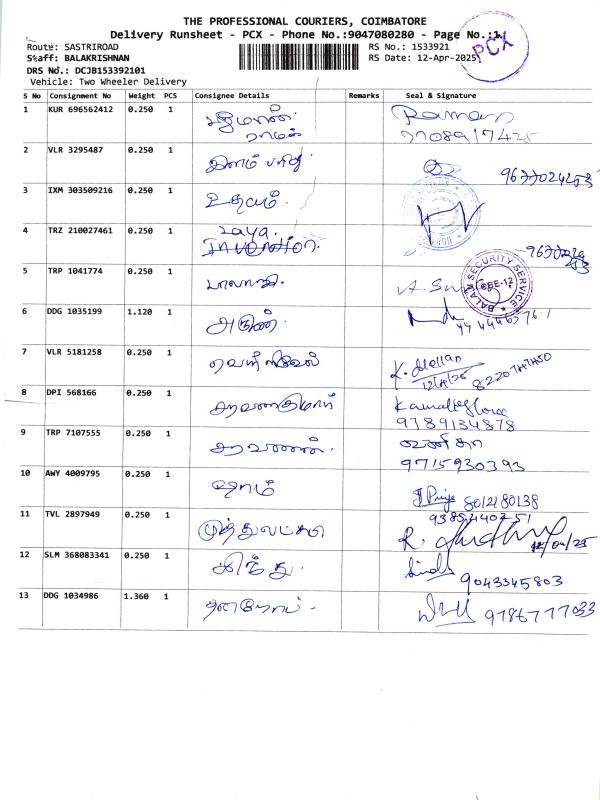 THE PROFESSIONAL COURIERS, COIMBATORE
Delivery Runsheet - PCX - Phone No.:9047080280 - Page No.:1
PCX
Route: SASTRIROAD
RS No.: 1533921
Staff: BALAKRISHNAN
RS Date: 12-Apr-2025
DRS No.: DCJB1533921​01
Vehicle: Two Wheeler Delivery
S No Consignment No Weight PCS Consignee Details Remarks Seal & Signature
1 KUR 696562412 0.250 1 Raman
7708917425
2 VLR 3295487 0.250 1 இளம் பரிதி. 9677024253
3 IXM 303509216 0.250 1 உதயம்.
4 TRZ 210027461 0.250 1 Zaya.
Invention.
BALAM SECURITY SERVICE
CBE-12
5 TRP 1041774 0.250 1 பாலாஜி.
6 DDG 1035199 1.120 1 அருண்.
7 VLR 5181258 0.250 1 வெற்றிவேல்
12/4/25
8 DPI 568166 0.250 1 சரவணகுமார்
9789134878
9 TRP 7107555 0.250 1 சரவணன். வனிதா
9715930393
10 AWY 4009795 0.250 1 ஷாம் Priya 8012180138
11 TVL 2897949 0.250 1 9385440251
12/04/25
12 SLM 368083341 0.250 1 சிந்து. Sindhu 9043345803
13 DDG 1034986 1.360 1 9786777033